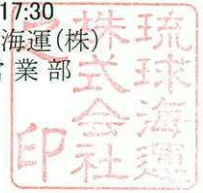 17:30
海運(株)
営業部
琉球海運
株式会社
之印